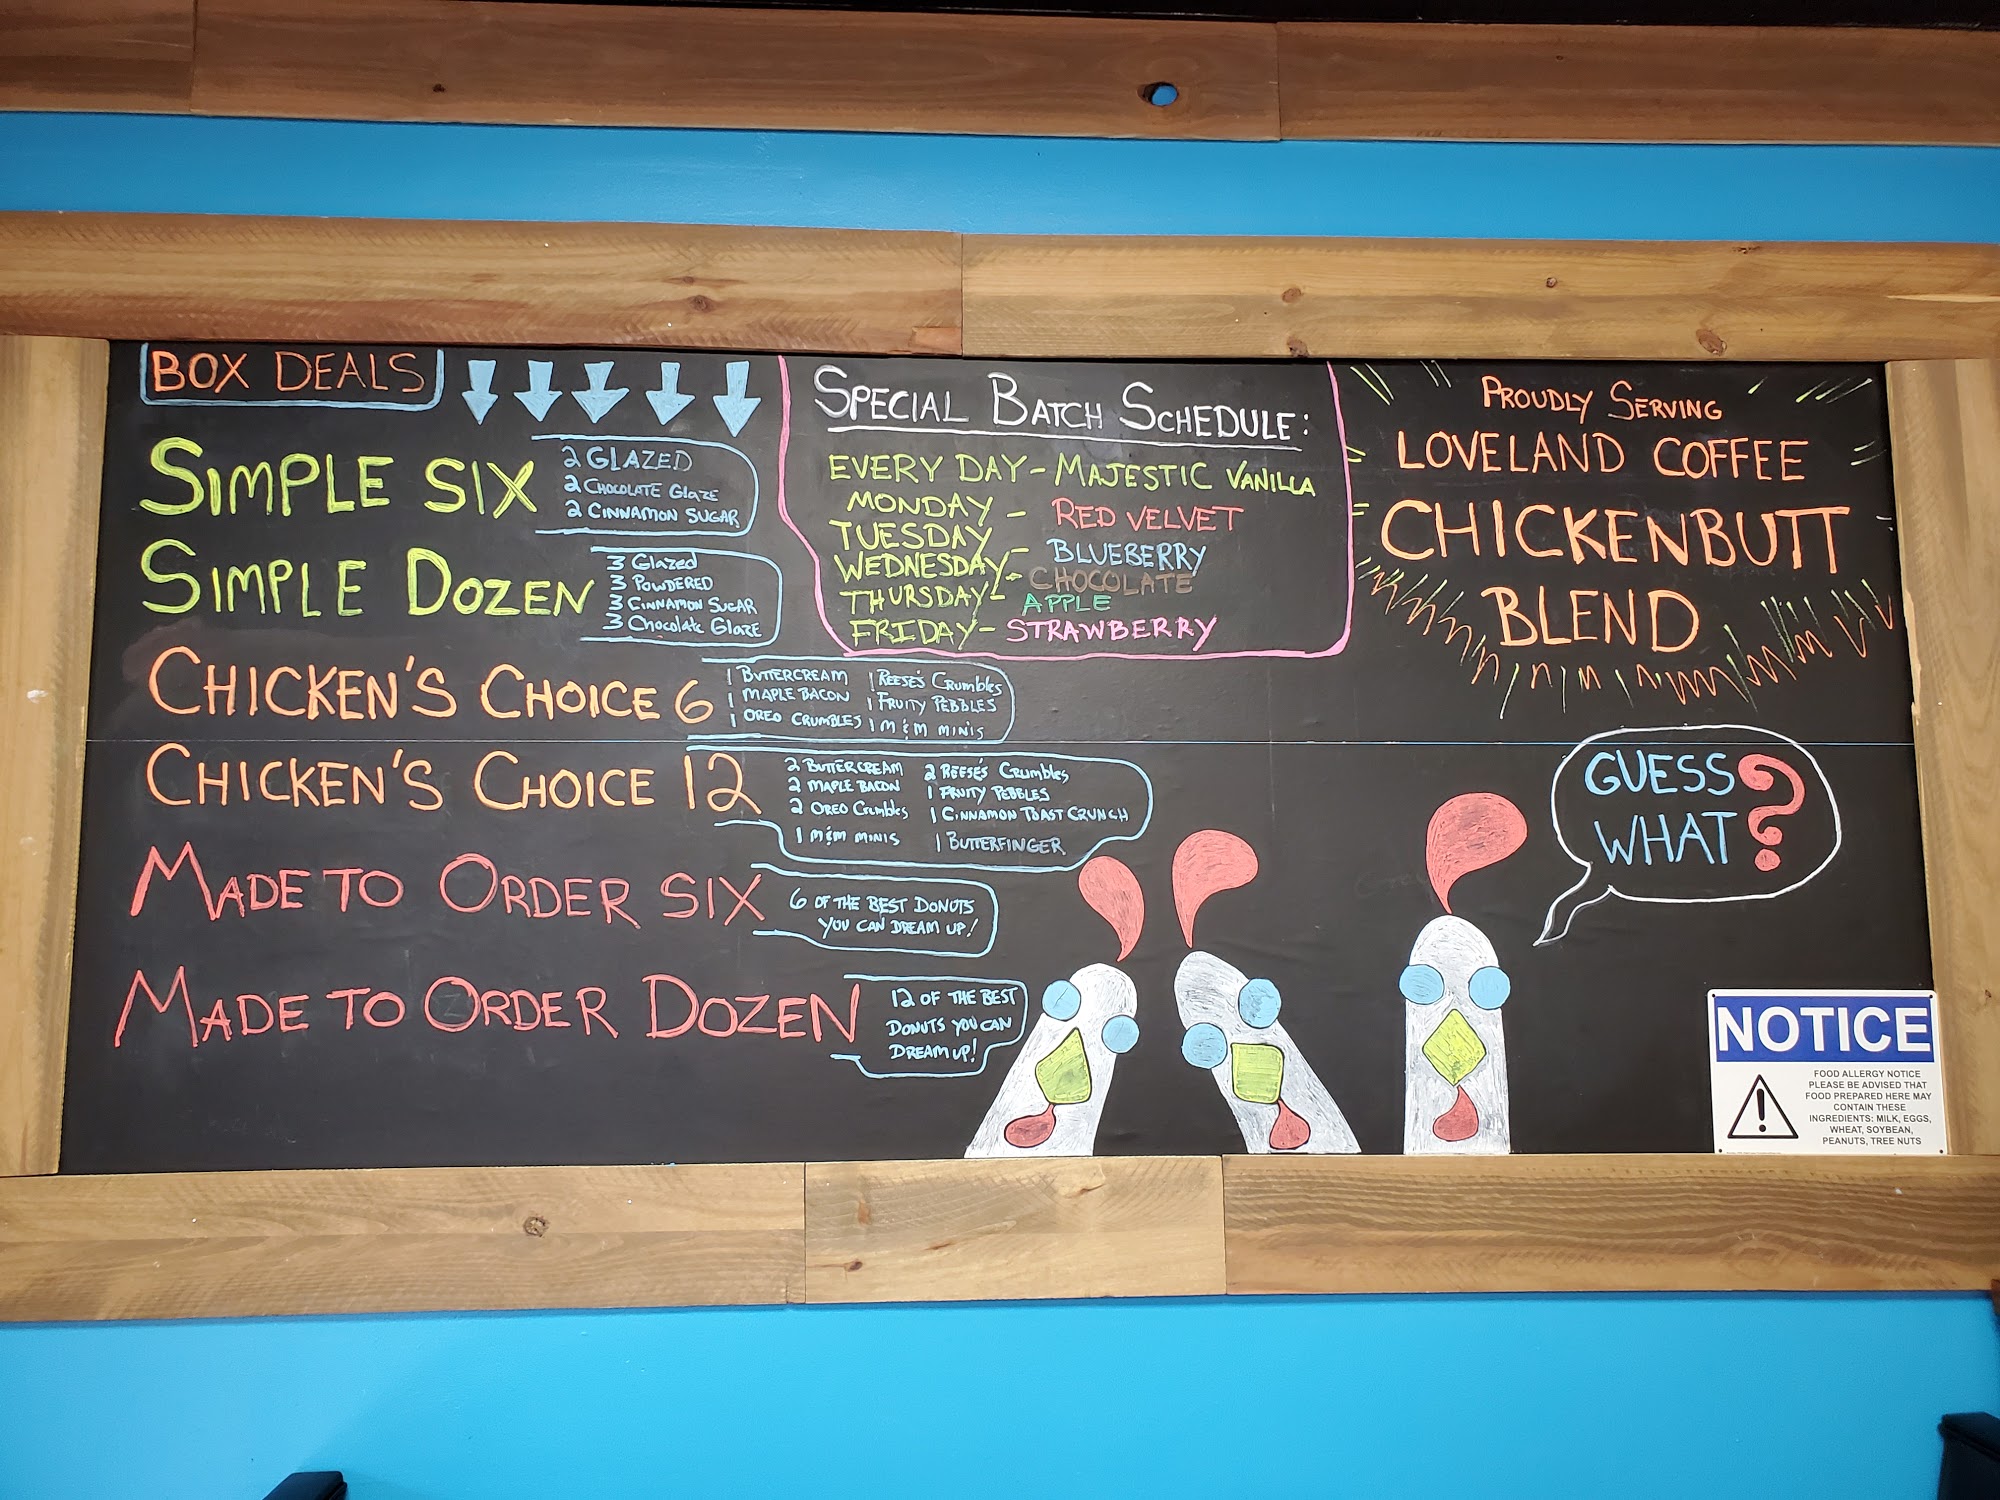 BOX DEALS
SIMPLE SIX
2 GLAZED
2 CHOCOLATE GLAZE
2 CINNAMON SUGAR
SIMPLE DOZEN
3 Glazed
3 POWDERED
3 CINNAMON SUGAR
3 Chocolate Glaze
CHICKEN'S CHOICE 6
1 BUTTERCREAM
1 MAPLE BACON
1 OREO CRUMBLES
1 REESE'S CRUMBLES
1 FRUITY PEBBLES
1 M&M MINIS
CHICKEN'S CHOICE 12
2 BUTTERCREAM
2 MAPLE BACON
2 OREO Crumbles
1 M&M MINIS
2 REESE'S Crumbles
1 FRUITY PEBBLES
1 CINNAMON TOAST CRUNCH
1 BUTTERFINGER
MADE TO ORDER SIX
6 OF THE BEST DONUTS
YOU CAN DREAM UP!
MADE TO ORDER DOZEN
12 OF THE BEST
DONUTS YOU CAN
DREAM UP!
SPECIAL BATCH SCHEDULE:
EVERY DAY - MAJESTIC VANILLA
MONDAY - RED VELVET
TUESDAY - BLUEBERRY
WEDNESDAY - CHOCOLATE
THURSDAY - APPLE
FRIDAY - STRAWBERRY
PROUDLY SERVING
LOVELAND COFFEE
CHICKENBUTT
BLEND
GUESS
WHAT?
NOTICE
FOOD ALLERGY NOTICE
PLEASE BE ADVISED THAT
FOOD PREPARED HERE MAY
CONTAIN THESE
INGREDIENTS: MILK, EGGS,
WHEAT, SOYBEAN,
PEANUTS, TREE NUTS